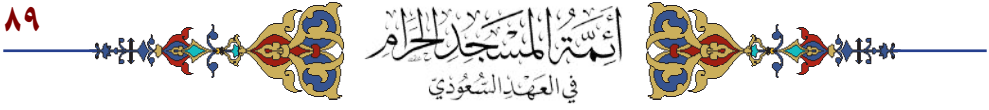 ٨٩
أَئِمَّةُ المَسْجِدِ الحَرَامِ
في العَهْدِ السُّعُودِيِّ